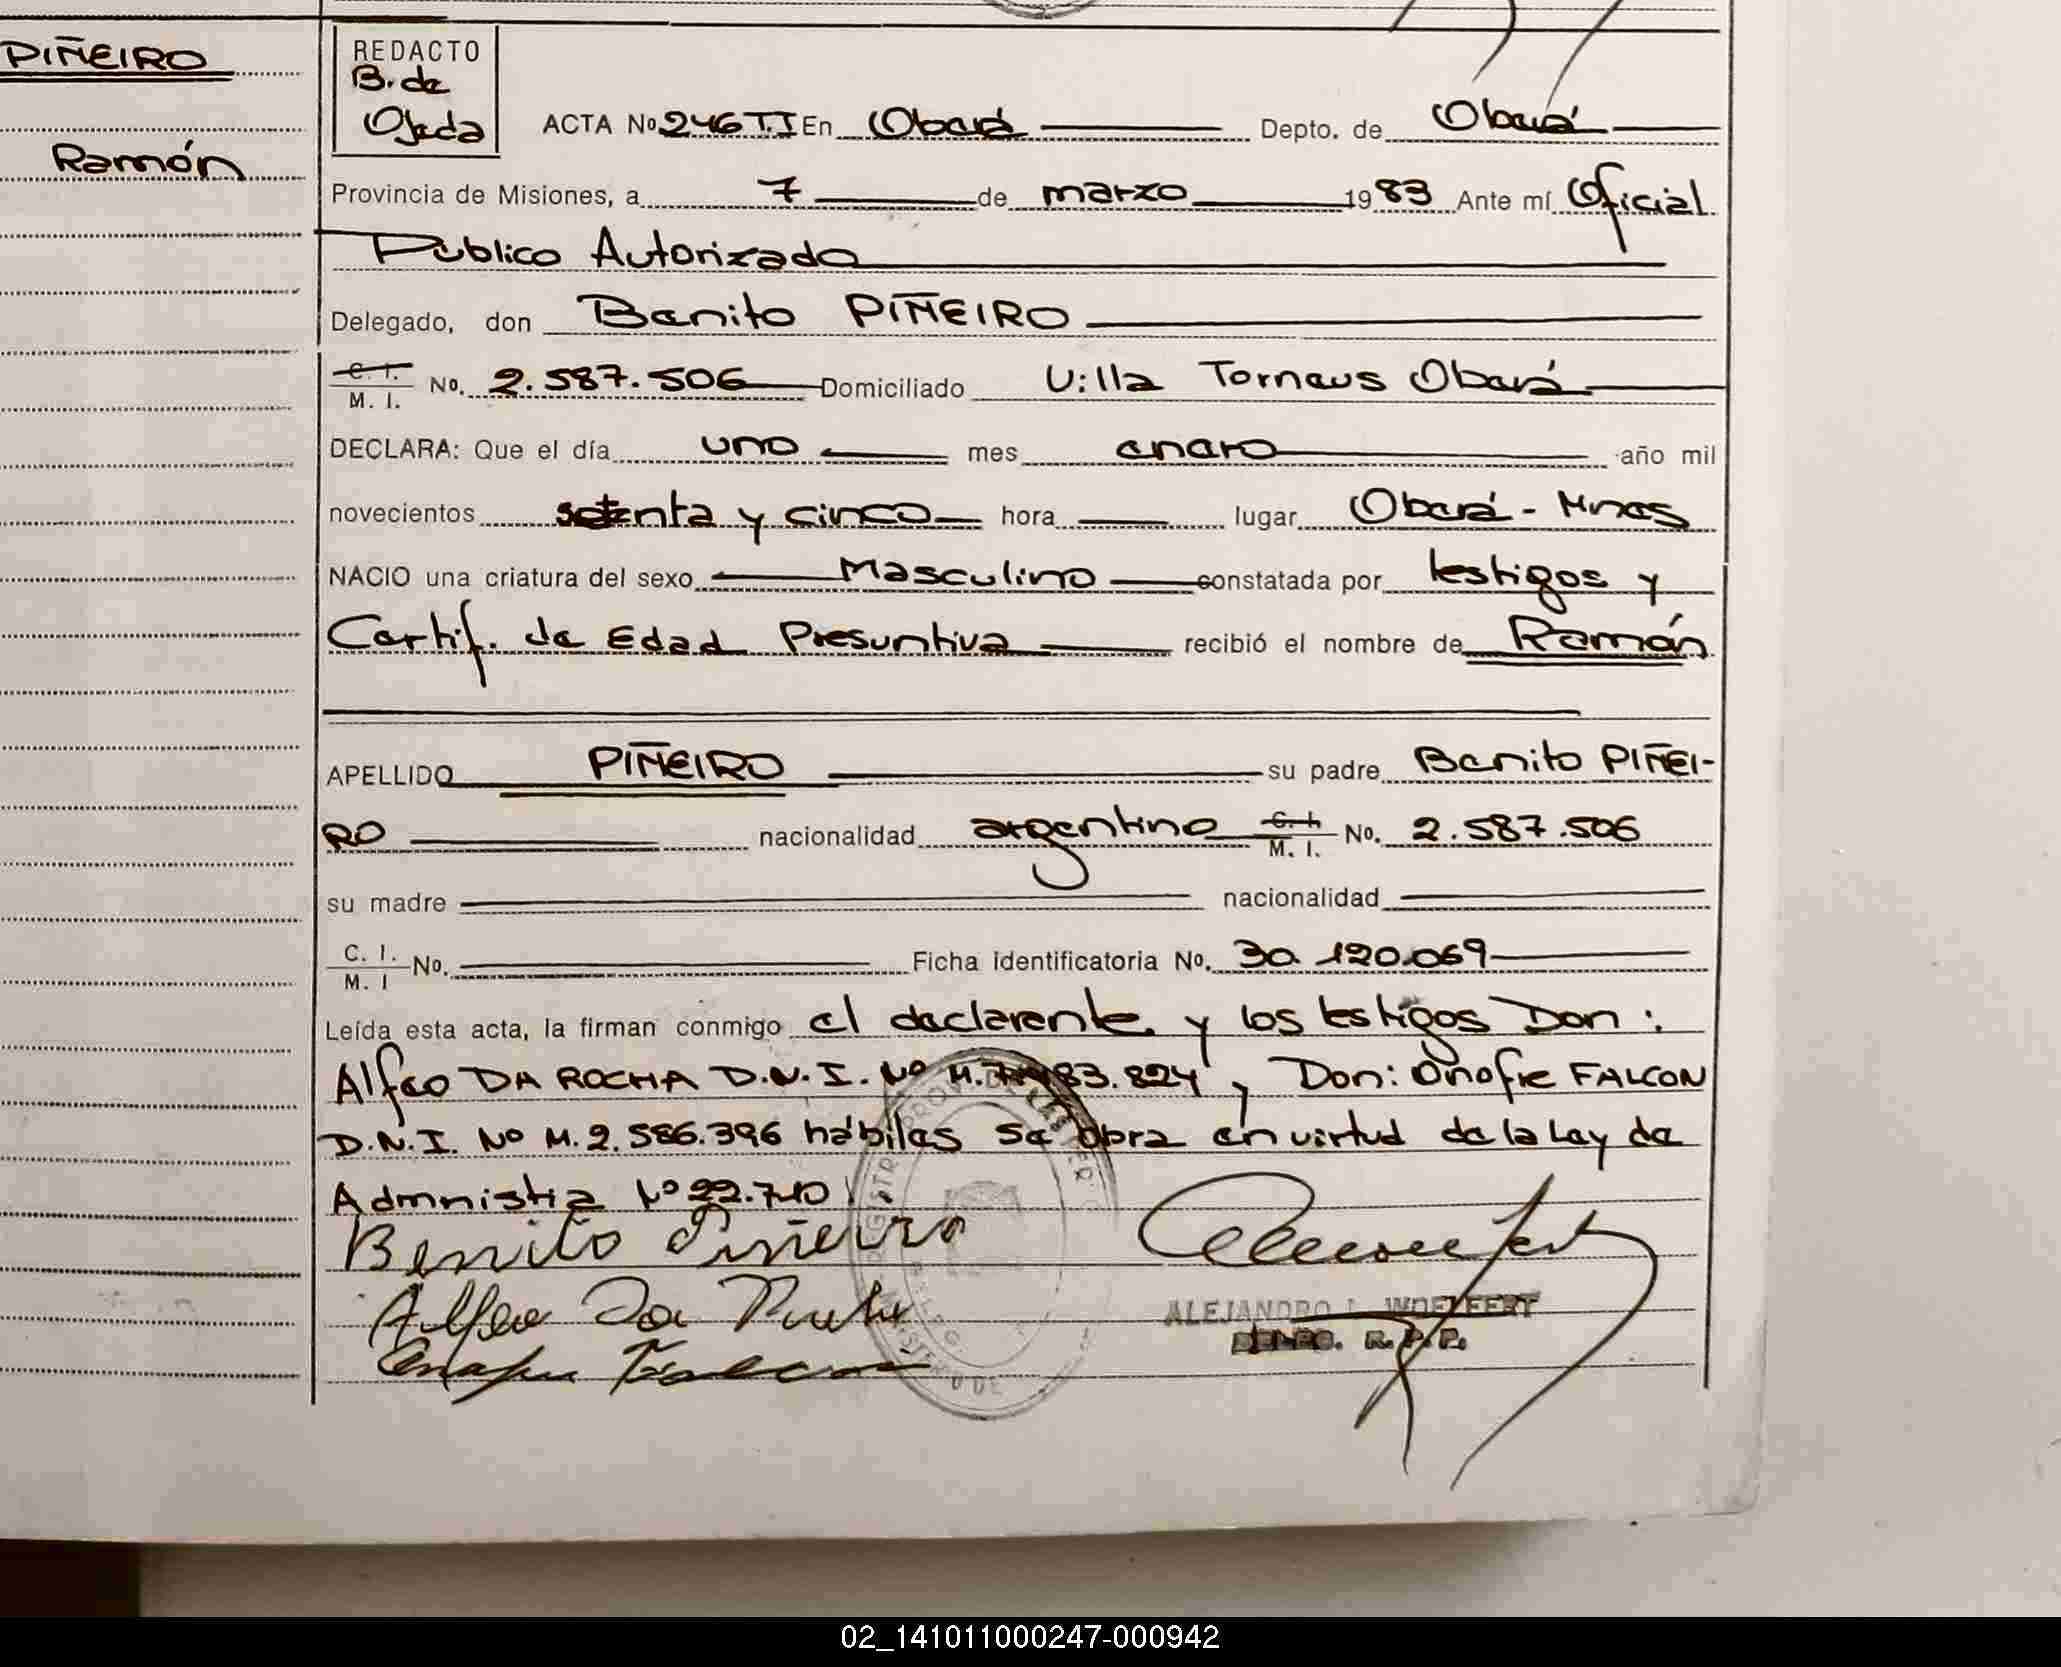 PIÑEIRO
Ramón
REDACTO
B. de
Ojeda
ACTA No 246 T.I En Oberá Depto. de Oberá
Provincia de Misiones, a 7 de marzo 1983 Ante mí Oficial
Público Autorizado
Delegado, don Benito PIÑEIRO
C. I. M. I. No. 2.587.506 Domiciliado Villa Torneus Oberá
DECLARA: Que el día uno mes enero año mil
novecientos setenta y cinco hora lugar Oberá - Mnes
NACIO una criatura del sexo Masculino constatada por testigos y
Certif. de Edad Presuntiva recibió el nombre de Ramón
APELLIDO PIÑEIRO su padre Benito PIÑEI-
RO nacionalidad argentino C. I. M. I. No. 2.587.506
su madre nacionalidad
C. I. M. I No. Ficha identificatoria No. 30.120.069
Leída esta acta, la firman conmigo el declarente y los testigos Don:
Alfeo DA ROCHA D.N.I. Nº M. 83.824 y Don: Onofre FALCON
D.N.I. Nº M. 2.586.396 hábiles se obra en virtud de la Ley de
Admnistia Nº 22.740
Benito Piñeiro
Alfeo Da Rocha
Onofre Falcon
ALEJANDRO L. WOELFERT
R. P. P.
02_141011000247-000942